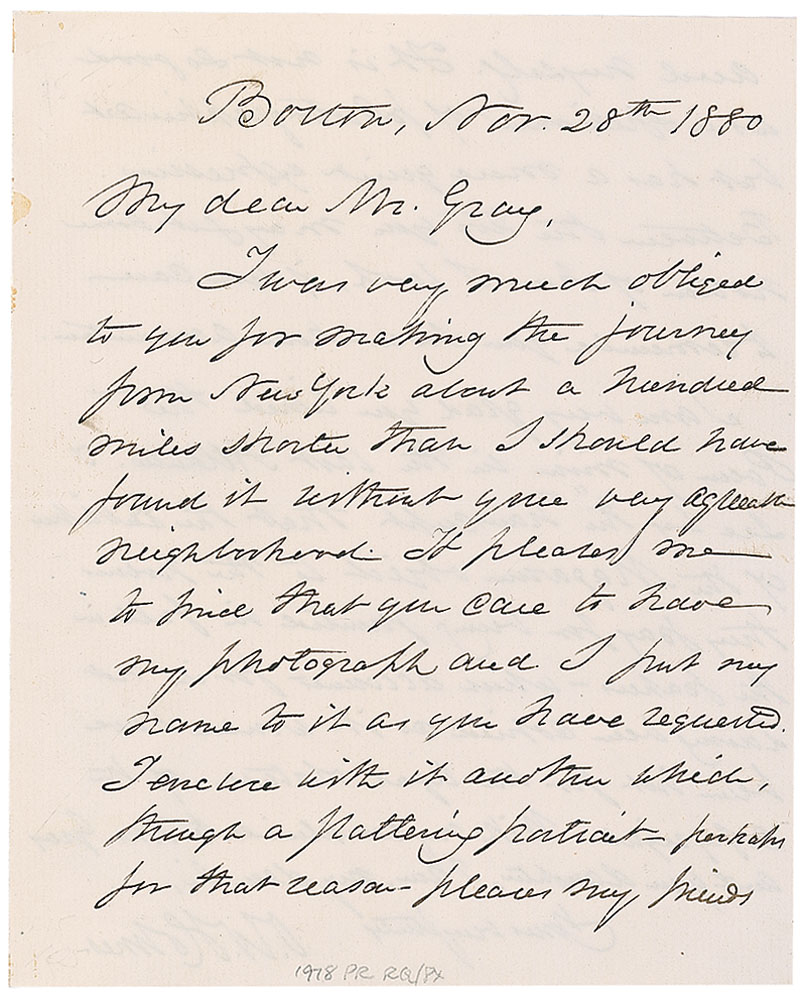 Boston, Nov. 28th 1880
My dear Mr. Gray,
I was very much obliged
to you for making the journey
from New York about a hundred
miles shorter than I should have
found it without your very agreeable
neighborhood. It pleases me
to find that you care to have
my photograph and I put my
name to it as you have requested.
I enclose with it another which,
though a flattering portrait – perhaps
for that reason – pleases my friends
1978 PR RQ/PX